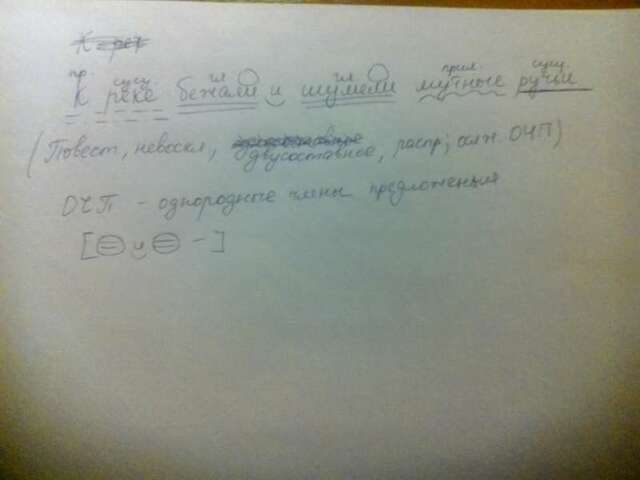 пр. сущ. гл гл прил сущ.
К реке бежали и шумели мутные ручьи
(Повест, невоскл, двусоставное, распр; осл. ОЧП)
ОЧП - однородные члены предложения
[= и = -]